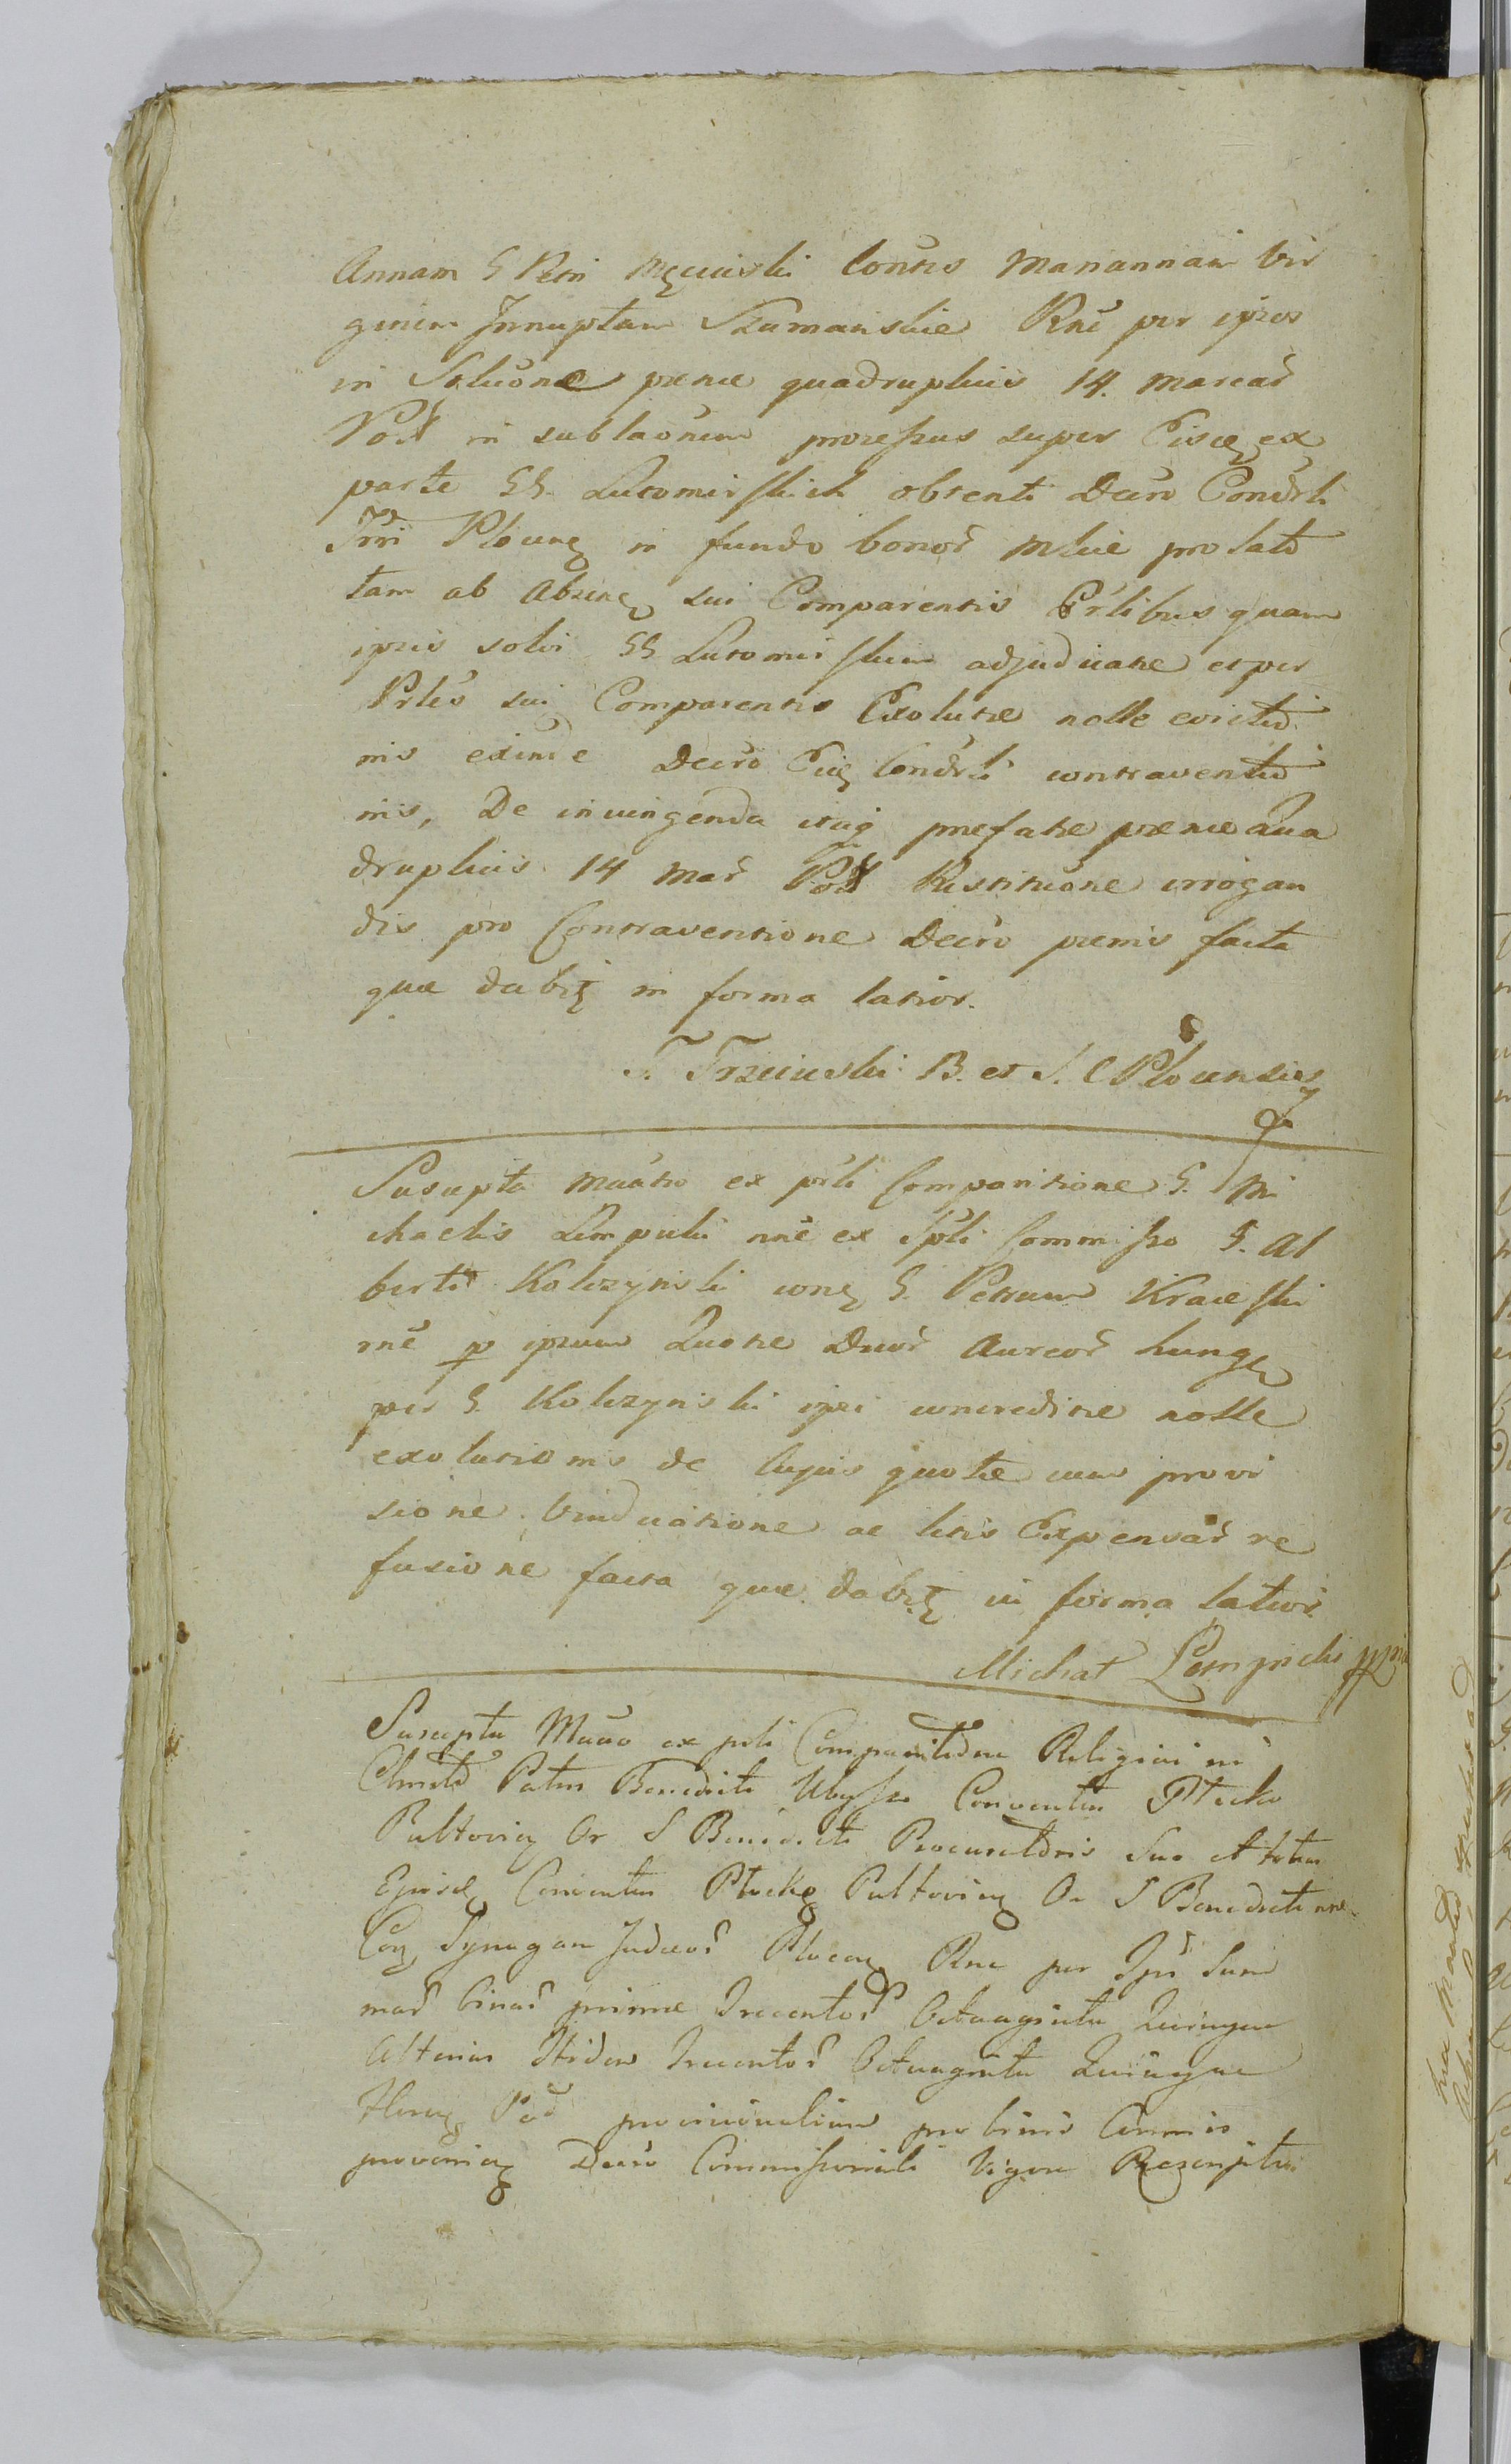 Annam G Petri Mąciwski Contis Mariannam Vir
ginem Innuptam Szumanskie Rnē per ipsos
in Soluōne pœnæ quadruplicis 14. Marcar
Pol in sublaōnem processus super Eisdę ex
parte GG. Lutomirskich obtenti Decro Condrli
Trri Plocenę in fundo bonor Mlice prolato
tam ab Absenę sui Comparentis Prlibus quam
ipsis solvi GG Lutomirskim adjudicatæ et per
Prles sui Comparentis Exolutæ nolle evictio
nis exinde Decro Eię Condrli contraventio
nis, De invingenda itaq prefatæ pœnæ Qua
druplicis 14 Mar Pol Restituōne irrogan
dis pro Contraventione Decro pœnis facta
quæ dabit in forma latior.
T. Trzciński B. et S. C Plocensis
Suscepta Muātio ex prli Comparitione G. Mi
chaelis Lempicki nnē ex Spli Commisso G. Al
berti Kolczynski conę G. Petrum Kraiewski
rnē p ipsum Quotæ Duor Aureor hungę
per G. Kolczynski ipsi concreditæ nolle
exolutionis de hujus quotæ cum provi
sione vindicatione ac litis Expensar re
fusione facta quæ dabit in forma latiori
Michał Lempicki mpp
Suscepta Muāo ex prli Comparitione Religiosi in
Christo Patris Benedicti Conventus Płocko
Pultovię Or S Benedicti Procuratoris Suo et totius
Ejusdę Conventus Płockę Pultovię Or S Benedicti nne
Conę Synagoam Judæor Plocenę Rne per Ips Sum
mar binar primæ Trecentor Octuaginta Quinque
Alterius Itidem Trecentor Octuaginta Quinque
Florę Pol provisionalium pro binis Annis
provenię Decro Commissoriali Vigore Rescripti